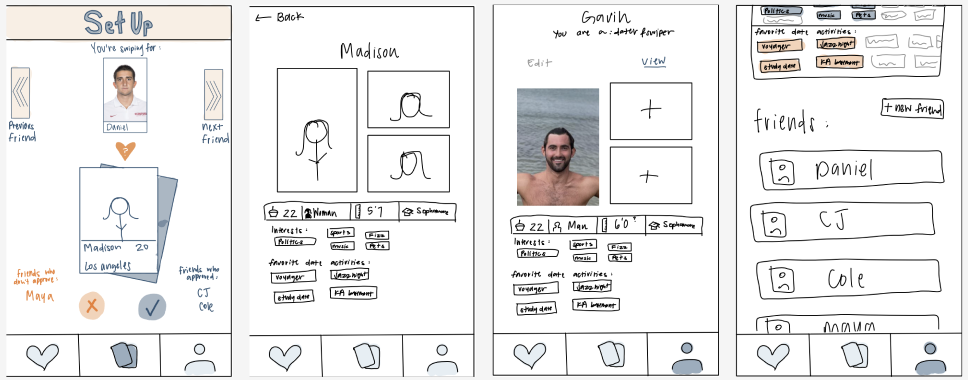 Set Up
You're swiping for:
Daniel
Previous
Friend
Next
Friend
?
Madison 20
Los angeles
Friends who
don't approve:
Maya
Friends who
approved:
CJ
Cole
← Back
Madison
22 Woman 5'7 Sophomore
Interests:
Politics sports Fizz
music Pets
favorite date activities:
voyager Jazz night
study date KA basement
Gavin
You are a: dater & swiper
Edit View
22 Man 6'0" Sophomore
Interests:
Politics sports Fizz
music Pets
favorite date activities:
voyager Jazz night
study date KA basement
Politics music Pets
favorite date activities:
voyager Jazz night
study date KA basement
+ new friend
friends:
Daniel
CJ
Cole
maya